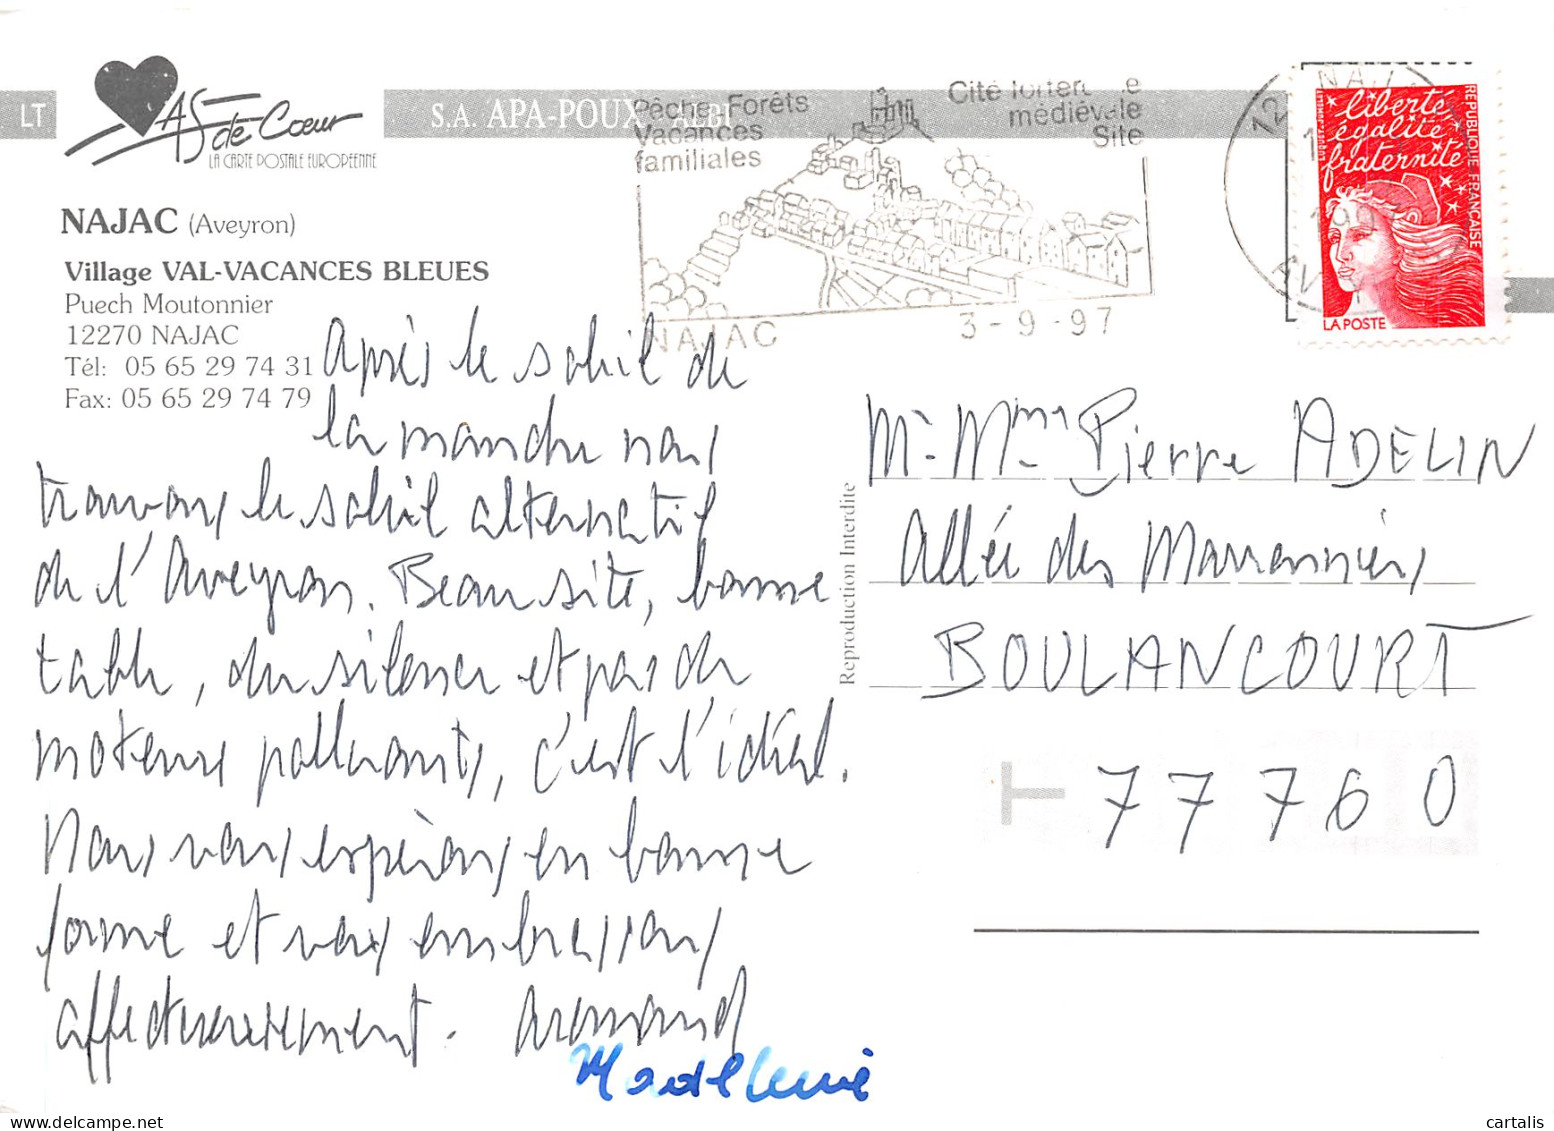 LT
AS de Cœur
LA CARTE POSTALE EUROPEENNE
S.A. APA-POUX ALBI
Pêche Forêts
Vacances
familiales
Cité
médiévale
Site
NAJAC
3-9-97
12
NAJ
AV
liberté
égalité
fraternité
RÉPUBLIQUE FRANÇAISE
LA POSTE
NAJAC (Aveyron)
Village VAL-VACANCES BLEUES
Puech Moutonnier
12270 NAJAC
Tél: 05 65 29 74 31
Fax: 05 65 29 74 79
Après le soleil de
la manche nous
trouvons le soleil alternatif
de l'Aveyron. Beau site, bonne
table, du silence et pas de
moteurs polluants, c'est l'idéal.
Nous vous espérons en bonne
forme et vous embrassons
affectueusement. Armand
Madeleine
Reproduction Interdite
Mr. Mme Pierre ADELIN
Allée des Marronniers
BOULANCOURT
77760